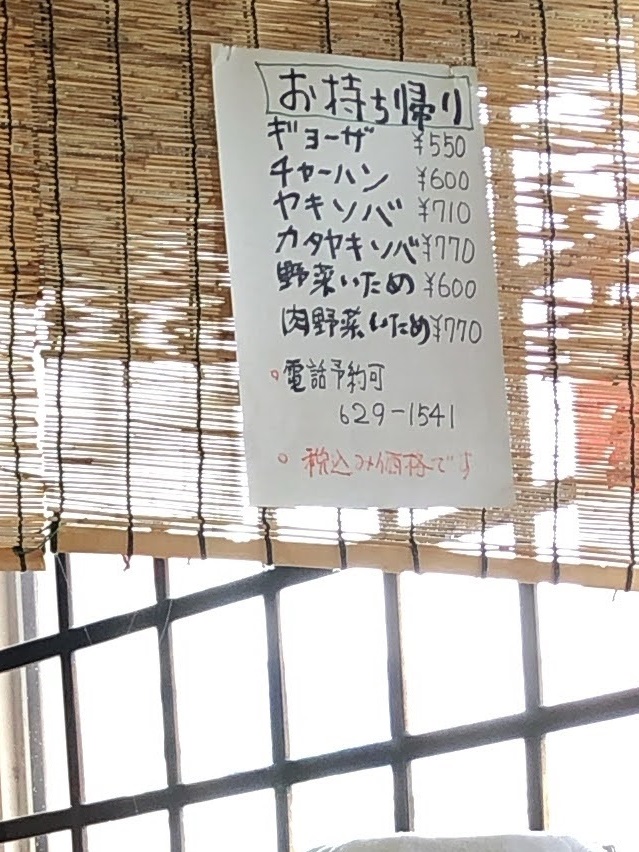 お持ち帰り
ギョーザ ¥550
チャーハン ¥600
ヤキソバ ¥710
カタヤキソバ ¥770
野菜いため ¥600
肉野菜いため ¥770
○電話予約可
629-1541
○税込み価格です